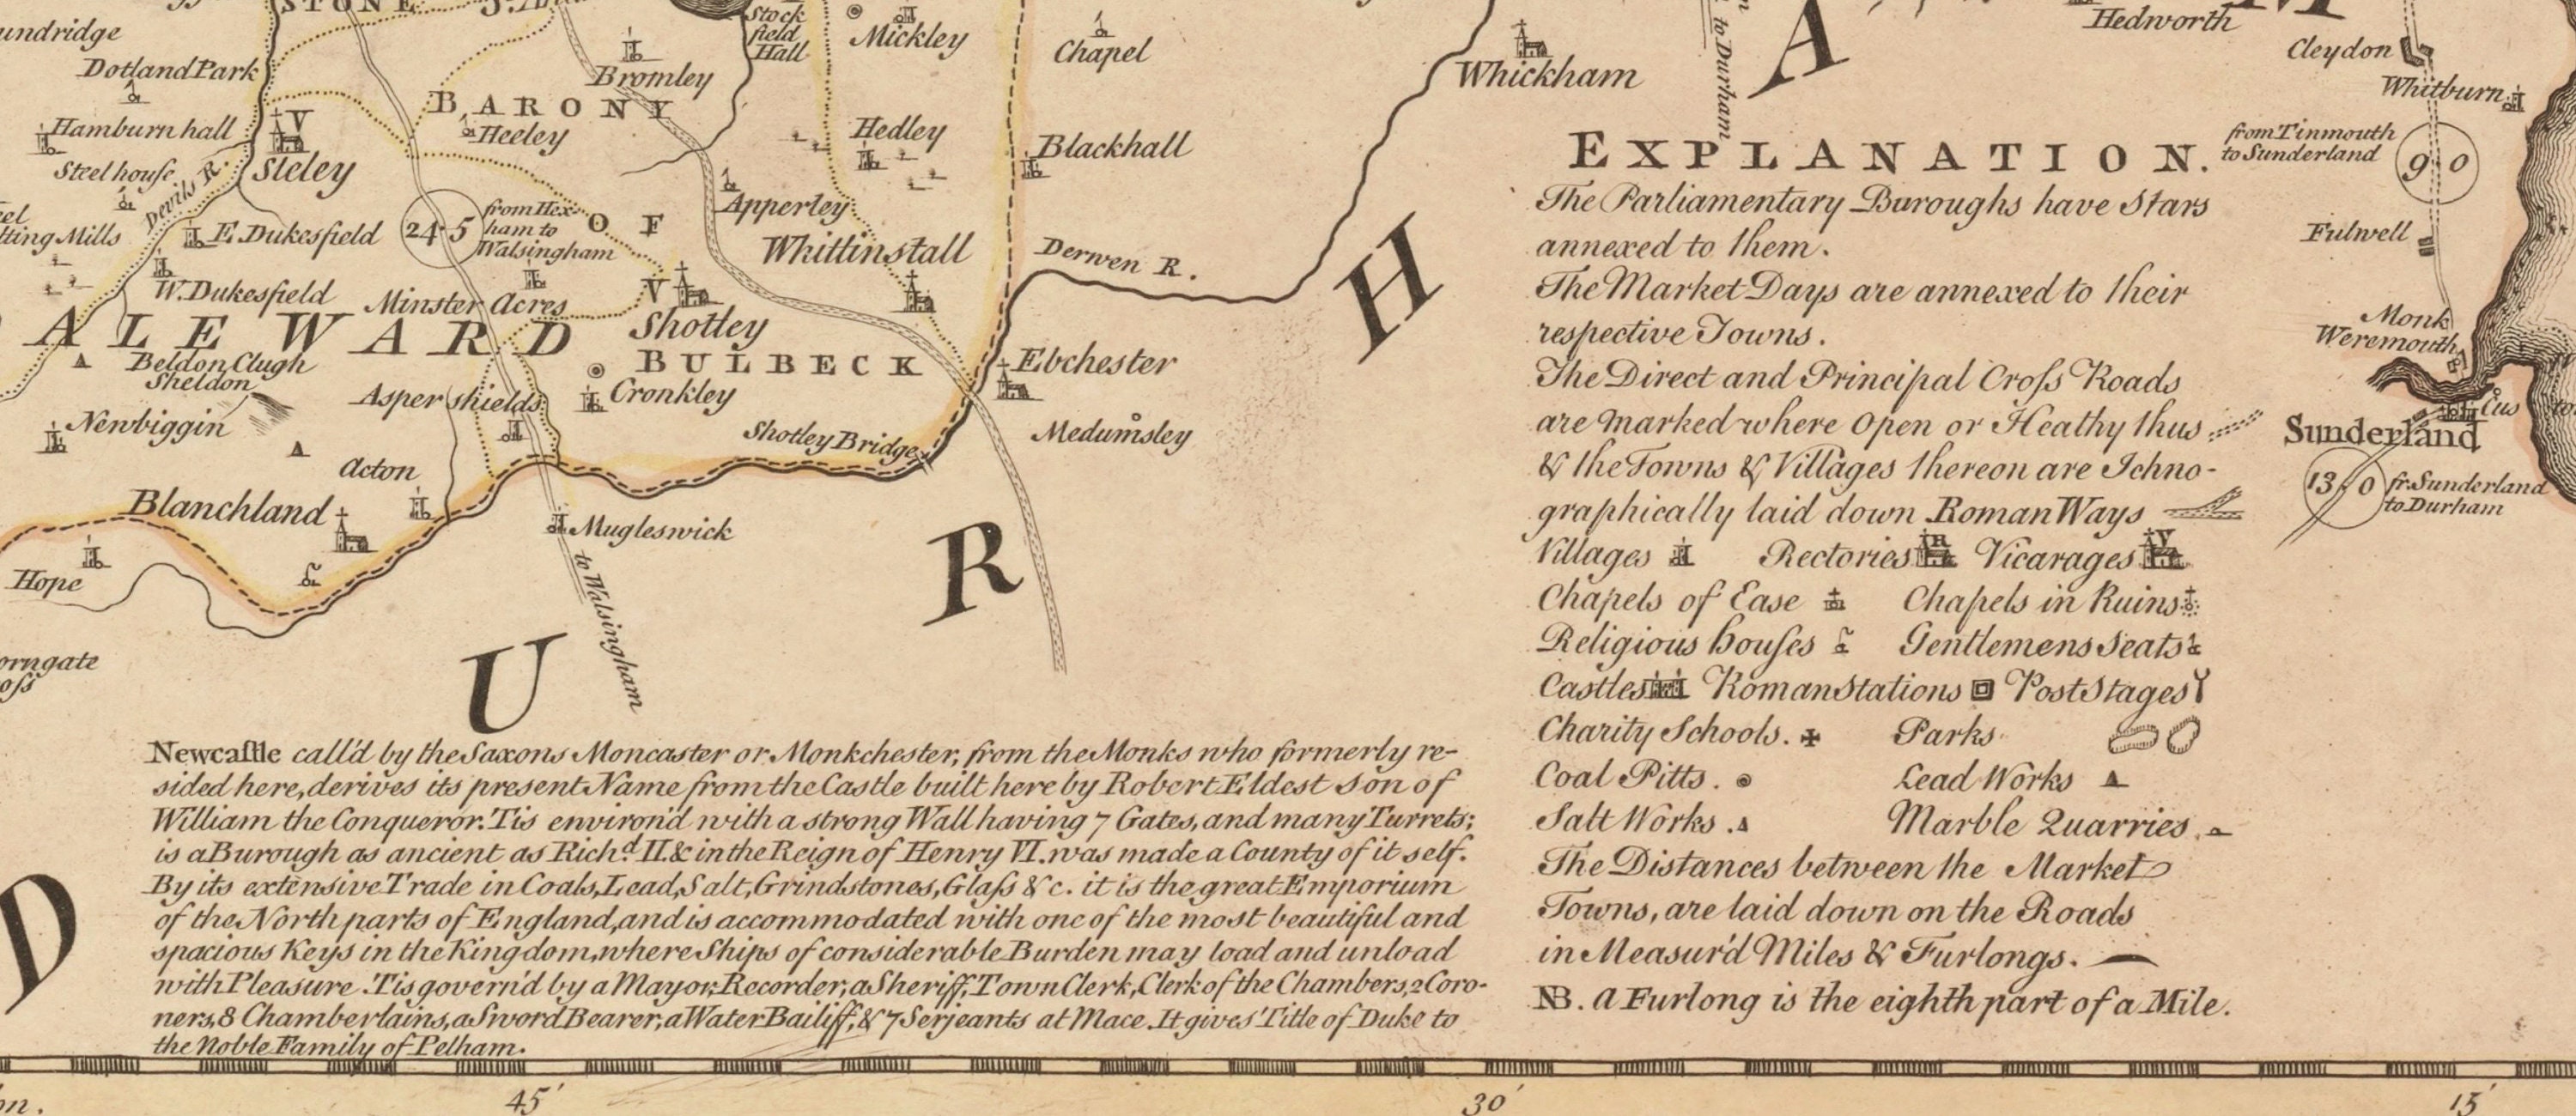 STONE
undridge
Dotland Park
Hamburn hall
Steel house
Devils R.
V
Sleley
tting Mills
E. Dukesfield
W. Dukesfield
24·5
from Hex-
ham to
Walsingham
Minster Acres
ALE WARD
Beldon Clugh
Sheldon
Newbiggin
Asper shields
Acton
Blanchland
Hope
orngate
oſs
Bromley
BARONY
Heeley
OF
BULBECK
Stock
field
Hall
Mickley
Hedley
Apperley
Whittinstall
V
Shotley
Cronkley
Shotley Bridge
Mugleswick
to Walsingham
Chapel
Blackhall
Derwen R.
Ebchester
Medumsley
Whickham
to Durham
D
U
R
H
A
M
Hedworth
Cleydon
Whitburn
from Tinmouth
to Sunderland
9·0
Fulwell
Monk
Weremouth
Sunderland
Cus
to
13·0
fr. Sunderland
to Durham
EXPLANATION.
The Parliamentary Buroughs have Stars
annexed to them.
The Market Days are annexed to their
respective Towns.
The Direct and Principal Croſs Roads
are marked where Open or Heathy thus
& the Towns & Villages thereon are Ichno-
graphically laid down Roman Ways
Villages Rectories R Vicarages V
Chapels of Ease Chapels in Ruins
Religious houſes Gentlemens Seats
Castles Roman Stations Post Stages
Charity Schools. Parks
Coal Pitts. Lead Works
Salt Works. Marble Quarries.
The Distances between the Market
Towns, are laid down on the Roads
in Measur'd Miles & Furlongs.
NB. a Furlong is the eighth part of a Mile.
Newcaſtle call'd by the Saxons Moncaster or Monkchester, from the Monks who formerly re-
sided here, derives its present Name from the Castle built here by Robert Eldest Son of
William the Conqueror. Tis environ'd with a strong Wall having 7 Gates, and many Turrets;
is a Burough as ancient as Richd. II. & in the Reign of Henry VI. was made a County of it self.
By its extensive Trade in Coals, Lead, Salt, Grindstones, Glaſs &c. it is the great Emporium
of the North parts of England, and is accommodated with one of the most beautiful and
spacious Keys in the Kingdom, where Ships of considerable Burden may load and unload
with Pleasure. Tis govern'd by a Mayor, Recorder, a Sheriff, Town Clerk, Clerk of the Chambers, 2 Coro-
ners, 8 Chamberlains, a Sword Bearer, a Water Bailiff, & 7 Serjeants at Mace. It gives Title of Duke to
the Noble Family of Pelham.
45′
30′
15′